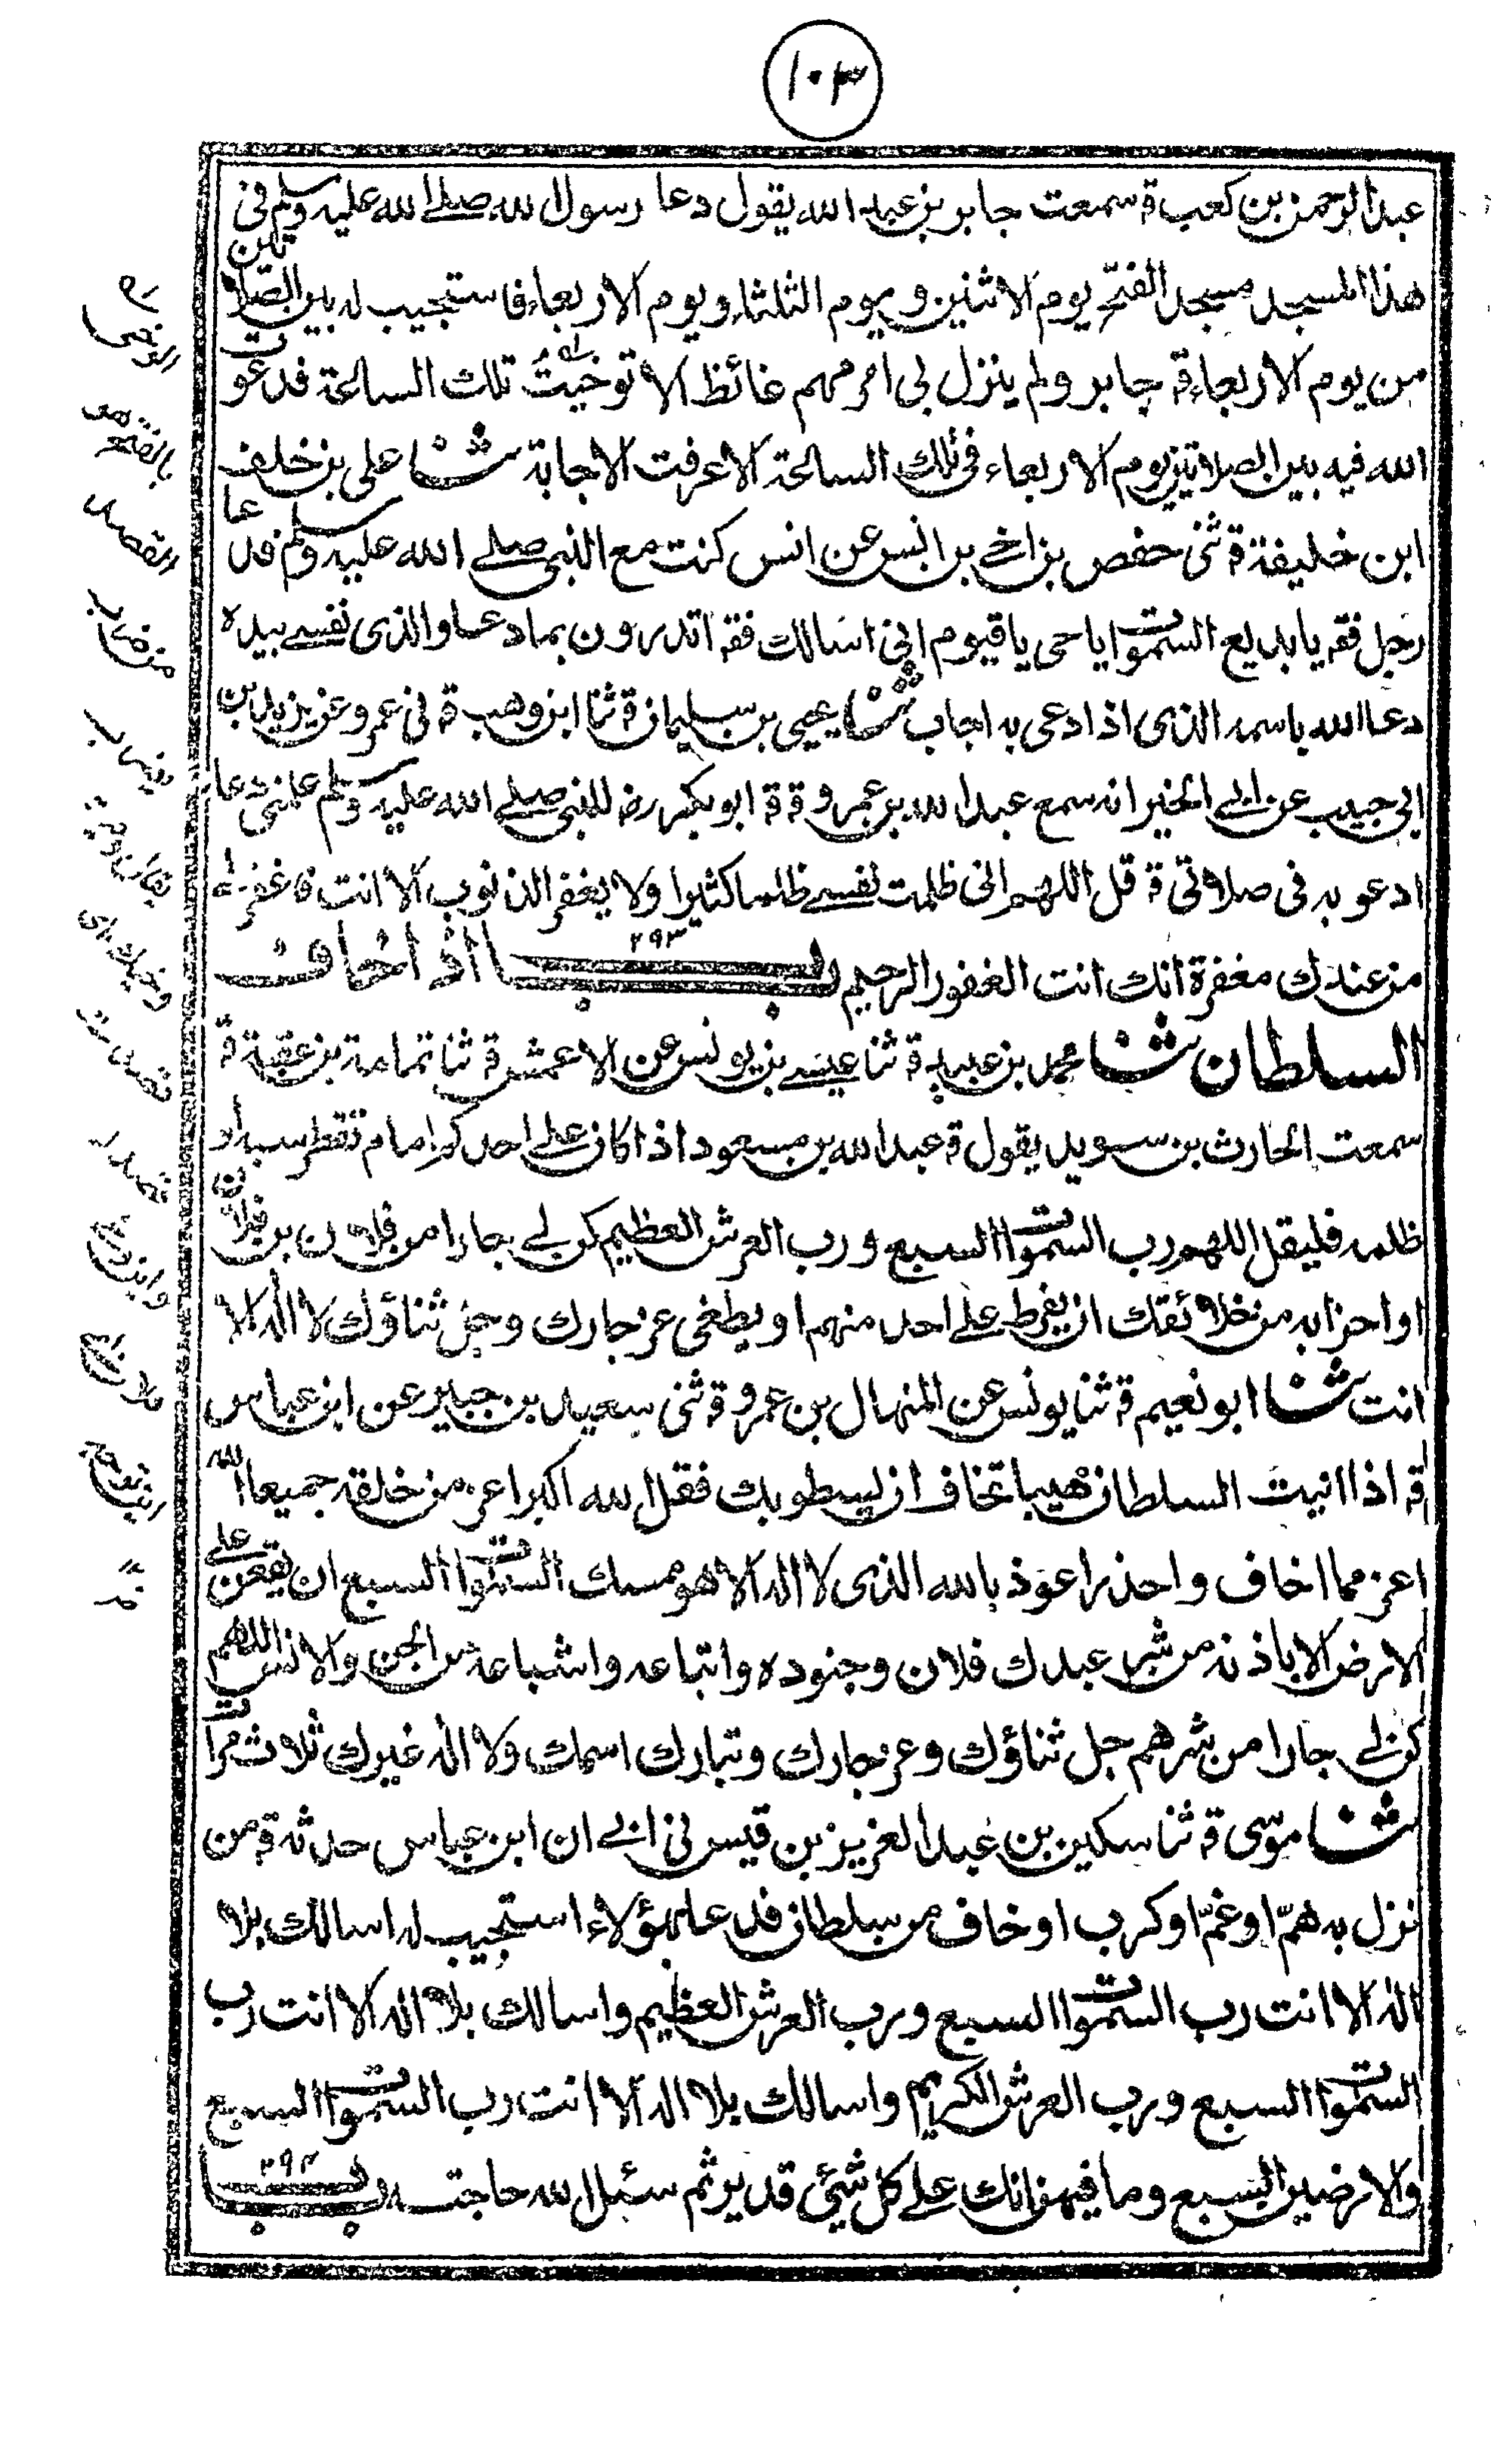 ١٠٣
عبد الرحمن بن كعب قة سمعت جابر بن عبد الله يقول دعا رسول الله صلے الله عليه وسلم فى
هذا المسجد مسجد الفتح يوم الاثنين و يوم الثلثاء ويوم الاربعاء فاستجيب له بين الصلاتين
من يوم الاربعاء قة جابر ولم ينزل بى امر مهم غائظ الا توخيتُ تلك الساعة فدعوت
الله فيه بين الصلاتين يوم الاربعاء فى تلك الساعة الا عرفت الاجابة ثنا على بن خلف
ابن خليفة قة ثنى حفص بن اخے بن انس عن انس كنت مع النبى صلے الله عليه وسلم فدعا
رجل فقه يا بديع السموات يا حى يا قيوم انى اسالك فقه اتدرون بما دعا والذى نفسے بيده
دعا الله باسمه الذى اذا دعى به اجاب ثنا يحيى بن سليمان قة ثنا ابن وهب قة نى عمرو عن يزيد بن
ابى حبيب عن ابے الخير انه سمع عبد الله بن عمرو قة قة ابو بكر رضه للنبى صلے الله عليه وسلم علمنى دعا
ادعو به فى صلاتى قة قل اللهم انى ظلمت نفسے ظلما كثيرا ولا يغفر الذنوب الا انت فاغفر لے
من عندك مغفرة انك انت الغفور الرحيم باب ٢٩٣ اذا خاف
السلطان ثنا محمد بن عبيد قة ثنا عيسے بن يونس عن الاعمش قة ثنا ثمامة بن عقبة قة
سمعت الحارث بن سويد يقول قة عبد الله بن مسعود اذا كان علے احدكم امام تغطرسه او
ظلمه فليقل اللهم رب السموات السبع ورب العرش العظيم كن لے جارا من فلان بن فلان
واحزابه من خلائقك ان يفرط علے احد منهم او يطغى عز جارك وجل ثناؤك لا اله الا
انت ثنا ابو نعيم قة ثنا يونس عن المنهال بن عمرو قة ثنى سعيد بن جبير عن ابن عباس
قة اذا اتيت السلطان مهيبا تخاف ان يسطو بك فقل الله اكبر اعز من خلقه جميعا الله
اعز مما اخاف واحذر اعوذ بالله الذى لا اله الا هو ممسك السموات السبع ان يقعن علے
الارض الا باذنه من شر عبدك فلان وجنوده واتباعه واشياعه من الجن والانس اللهم
كن لے جارا من شرهم جل ثناؤك وعز جارك وتبارك اسمك ولا اله غيرك ثلاث مرات
ثنا موسى قة ثنا سكين بن عبد العزيز بن قيس نى ابے ان ابن عباس حدثه قة من
نزل به همّ او غمّ او كرب او خاف من سلطان فدعا بهؤلاء استجيب له اسالك بلا
اله الا انت رب السموات السبع ورب العرش العظيم واسالك بلا اله الا انت رب
السموات السبع ورب العرش الكريم واسالك بلا اله الا انت رب السموات السبع
والارضين السبع وما فيهن انك علے كل شئ قدير ثم سئل الله حاجته باب ٢٩٤